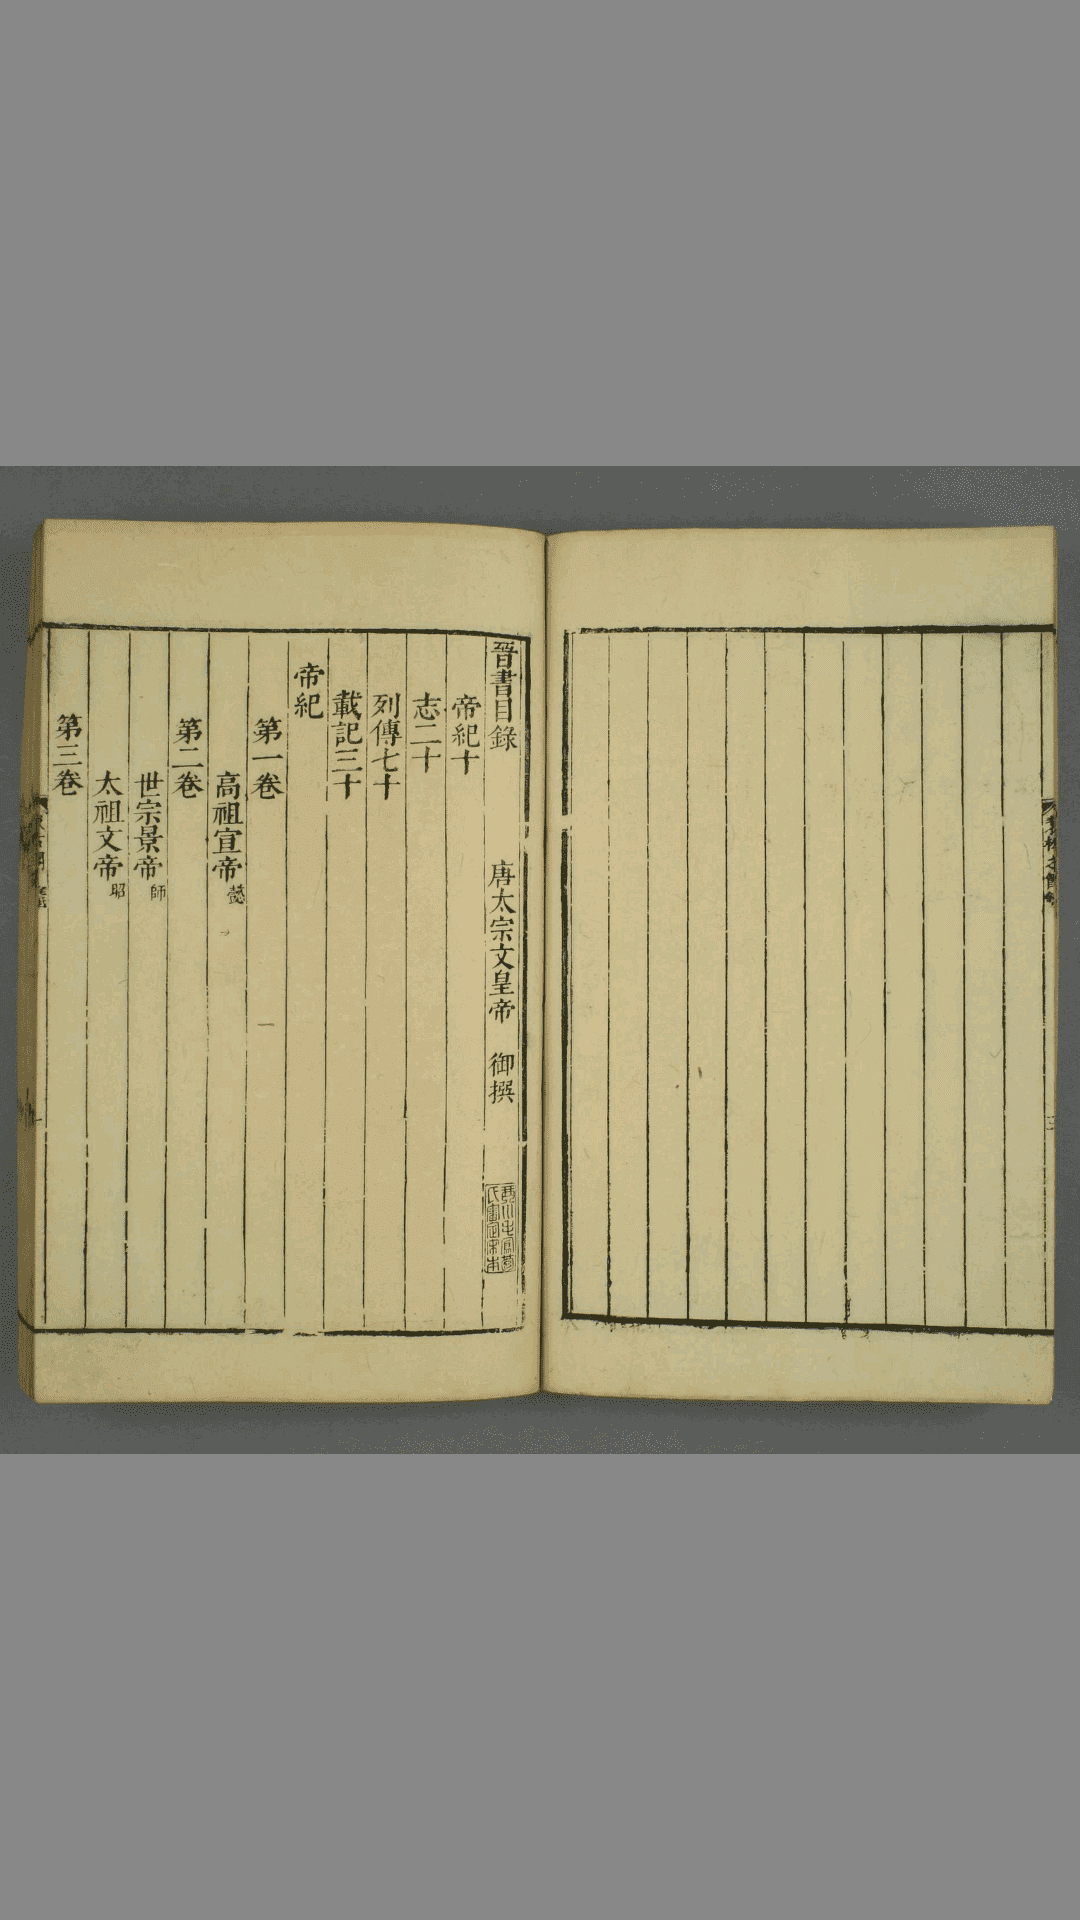 晉書目錄 唐太宗文皇帝 御撰
帝紀十
志二十
列傳七十
載記三十
帝紀
第一卷
高祖宣帝懿
第二卷
世宗景帝師
太祖文帝昭
第三卷